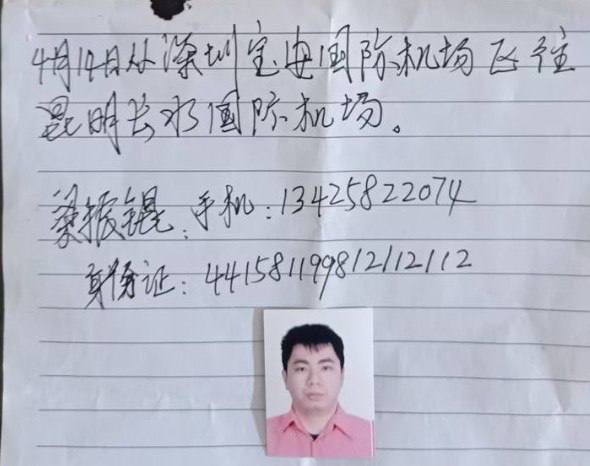 4月14日从深圳宝海国际机场飞往
昆明长水国际机场。
梁振锟:手机:13425822074
身份证:441581199812112112